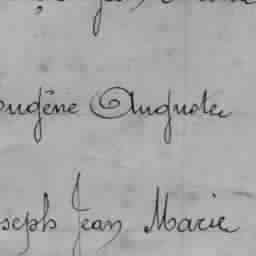 ougène Auguste
seph Jean Marie